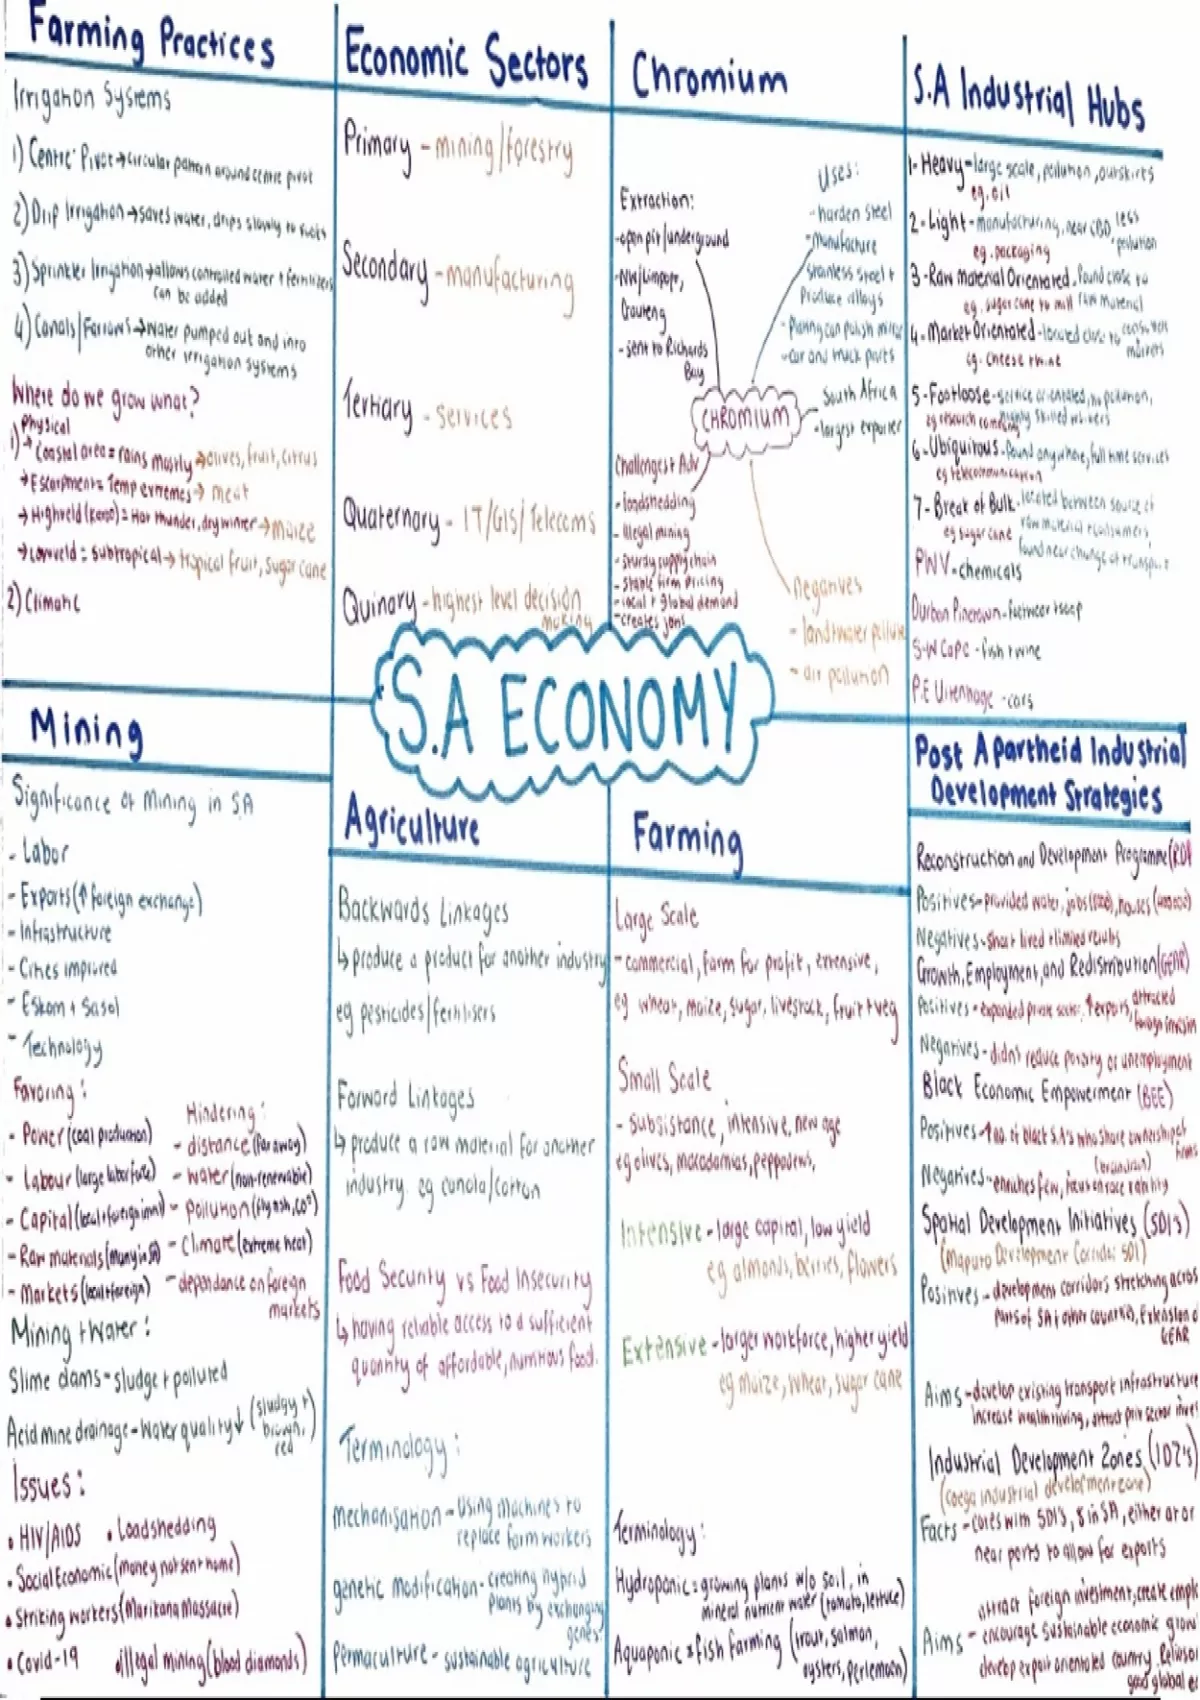 Farming Practices
Irrigation Systems
1) Centre Pivot → circular pattern around centre pivot
2) Drip Irrigation → saves water, drips slowly to roots
3) Sprinkler Irrigation → allows controlled water + fertilizers
can be added
4) Canals/Farrows → Water pumped out and into
other irrigation systems
Where do we grow what?
Physical
1) → Coastal area = rains mostly → olives, fruit, citrus
→ Escarpment = Temp extremes → meat
→ Highveld (Karoo) = Hot thunder, dry winter → maize
→ Lowveld = subtropical → tropical fruit, sugar cane
2) Climatic
Economic Sectors
Primary - mining/forestry
Secondary - manufacturing
Tertiary - services
Quaternary - IT/GIS/Telecoms
Quinary - highest level decision
making
Chromium
Extraction:
- open pit/underground
- NW/Limpopo,
Gauteng
- sent to Richards
Bay
Uses:
- harden steel
- Manufacture
stainless steel +
Produce alloys
- Plating can polish mirror
- car and truck parts
CHROMIUM
South Africa
- largest exporter
Challenges + Adv
- loadshedding
- Illegal mining
- sturdy supply chain
- stable firm pricing
- local + global demand
- creates jobs
Negatives
- land + water pollute
- air pollution
S.A Industrial Hubs
1- Heavy - large scale, pollution, outskirts
eg. oil
2- Light - manufacturing, near CBD, less
pollution
eg. packaging
3- Raw Material Orientated - found close to
raw material
eg. sugar cane to mill
4- Market Orientated - located close to consumers
markets
eg. cheese + wine
5- Footloose - service orientated, no pollution,
highly skilled workers
eg research company
6- Ubiquitous - found anywhere, full time services
eg telecommunication
7- Break of Bulk - located between source of
raw material + consumers,
found near change of transport
eg sugar cane
PWV - chemicals
Durban Pinetown - footwear + soap
S-W Cape - fish + wine
P.E Uitenhage - cars
S.A ECONOMY
Mining
Significance of Mining in SA
- Labor
- Exports (↑ foreign exchange)
- Infrastructure
- Cities improved
- Eskom + Sasol
- Technology
Favoring:
- Power (coal production)
- Labour (large labor force)
- Capital (local + foreign inv)
- Raw materials (many in SA)
- Markets (local + foreign)
Hindering:
- distance (far away)
- water (non-renewable)
- pollution (fly ash, CO²)
- Climate (extreme heat)
- dependance on foreign
markets
Mining + Water:
Slime dams - sludge + polluted
Acid mine drainage - Water quality ↓ (sludgy +
brown,
red)
Issues:
• HIV/AIDS • Loadshedding
• Social Economic (money not sent home)
• Striking workers (Marikana Massacre)
• Covid-19 • illegal mining (blood diamonds)
Agriculture
Backwards Linkages
↳ produce a product for another industry
eg pesticides/fertilisers
Forward Linkages
↳ produce a raw material for another
industry. eg canola/cotton
Food Security vs Food Insecurity
↳ having reliable access to a sufficient
quantity of affordable, nutritious food.
Terminology:
mechanisation - Using machines to
replace farm workers
genetic modification - creating hybrid
plants by exchanging
genes.
Permaculture - sustainable agriculture
Farming
Large Scale
- commercial, farm for profit, extensive,
eg wheat, maize, sugar, livestock, fruit + veg
Small Scale
- subsistance, intensive, new age
eg olives, macadamias, peppadews,
Intensive - large capital, low yield
eg almonds, berries, flowers
Extensive - larger workforce, higher yield
eg maize, wheat, sugar cane
Terminology:
Hydroponic = growing plants w/o soil, in
mineral nutrient water (tomato, lettuce)
Aquaponic = fish farming (trout, salmon,
oysters, perlemoen)
Post Apartheid Industrial
Development Strategies
Reconstruction and Development Programme (RDP
Positives - provided water, jobs, houses
Negatives - short lived + limited results
Growth, Employment, and Redistribution (GEAR)
Positives - expanded private sector, ↑ exports, attracted
foreign
Negatives - didn't reduce poverty or unemployment
Black Economic Empowerment (BEE)
Positives - ↑ no. of black SA's who share ownership of
firms
(braindrain)
Negatives - enriches few, focus on race + ability
Spatial Development Initiatives (SDI's)
(Maputo Development Corridor SDI)
Positives - development corridors stretching across
parts of SA + other countries, Extension o
GEAR
Aims - develop existing transport infrastructure
increase wealth + living, attract priv sector
Industrial Development Zones (IDZ's)
(Coega industrial development zone)
Facts - cores with SDI's, 8 in SA, either at or
near ports to allow for exports
attract foreign investment, create
Aims - encourage sustainable economic grow
develop export orientated country
good global